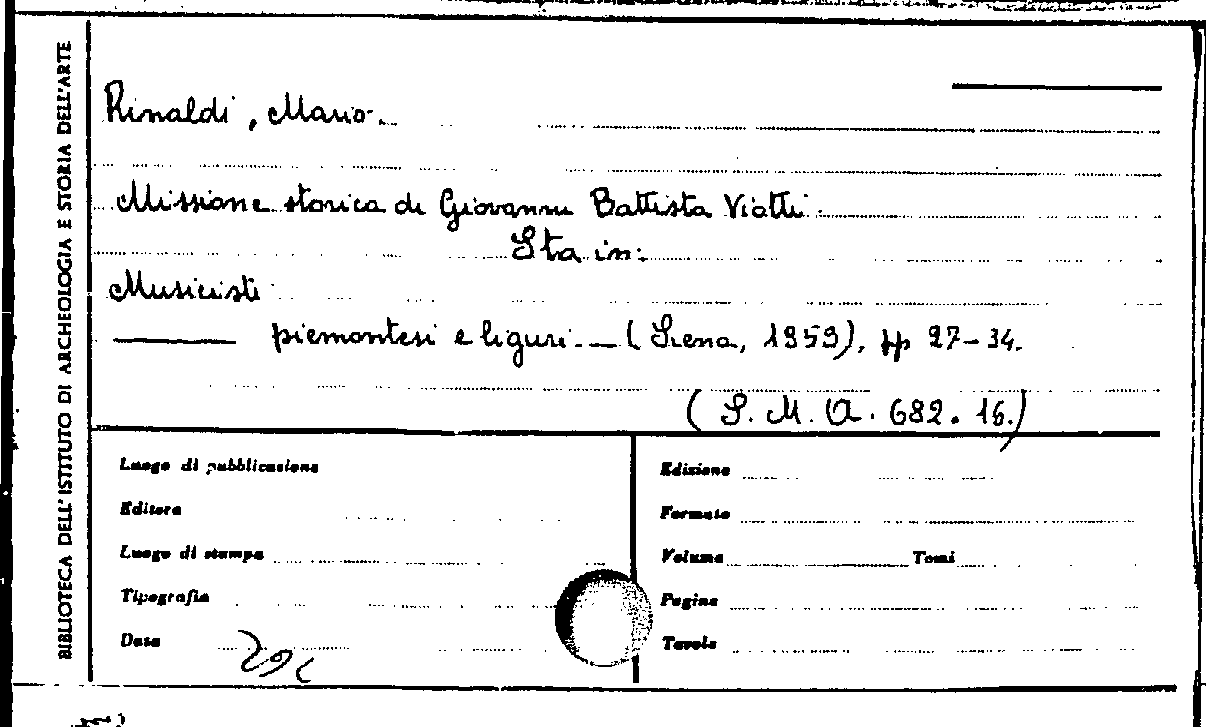 BIBLIOTECA DELL' ISTITUTO DI ARCHEOLOGIA E STORIA DELL'ARTE
Rinaldi, Mario.
Missione storica di Giovanni Battista Viotti.
Sta in:
Musicisti
piemontesi e liguri. — (Siena, 1959), pp 27-34.
(S. M. A. 682. 16.)
Luogo di pubblicazione
Editore
Luogo di stampa
Tipografia
Data
Edizione
Formato
Volume Tomi
Pagine
Tavole